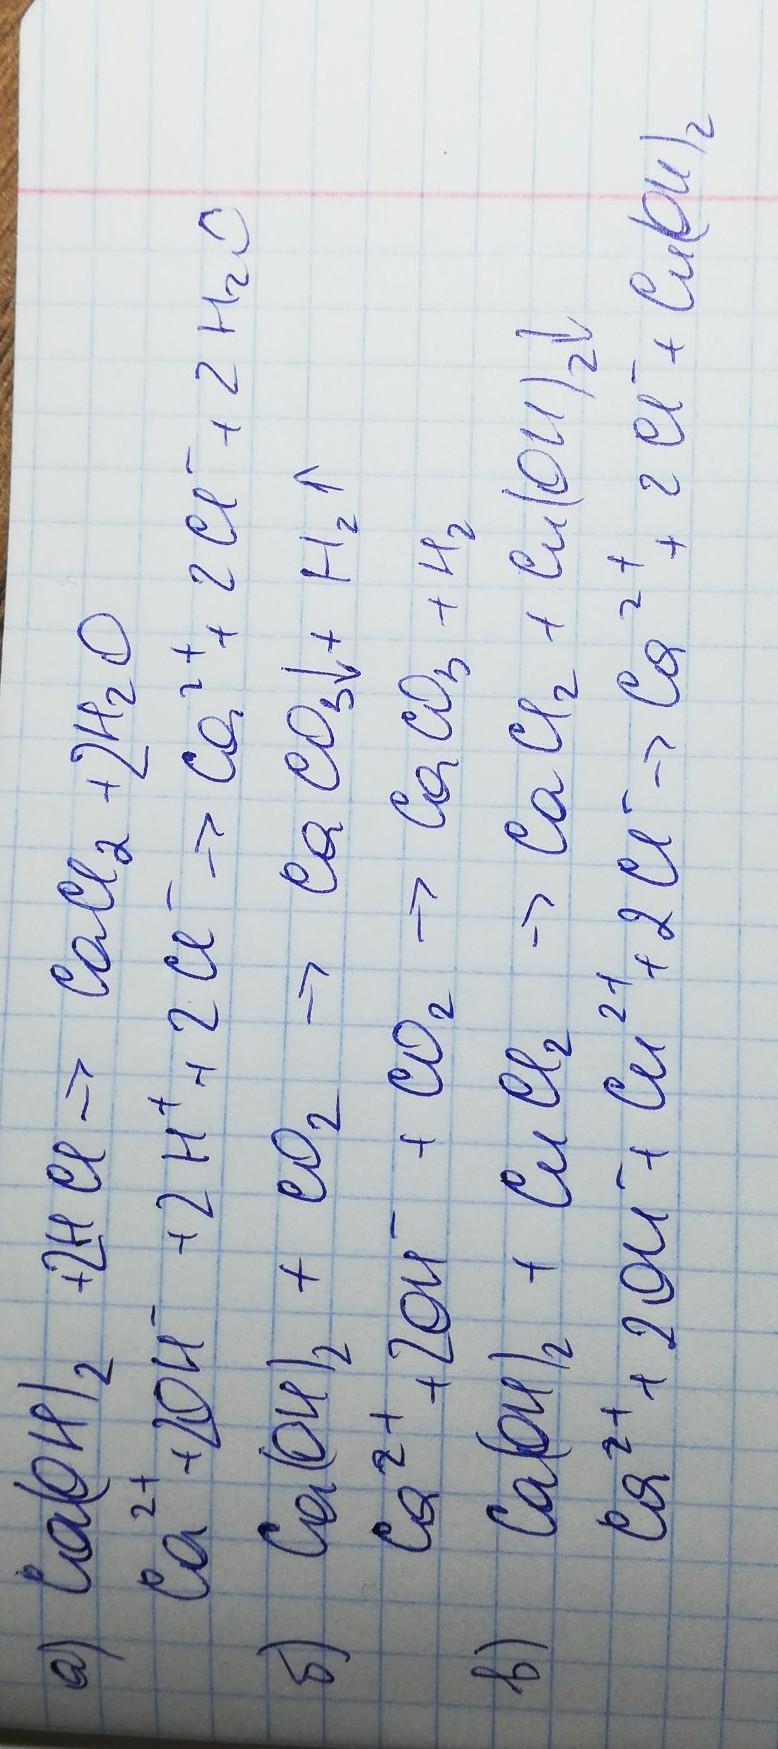 а) Ca(OH)₂ + 2HCl → CaCl₂ + 2H₂O
Ca²⁺ + 2OH⁻ + 2H⁺ + 2Cl⁻ → Ca²⁺ + 2Cl⁻ + 2H₂O
б) Ca(OH)₂ + CO₂ → CaCO₃↓ + H₂↑
Ca²⁺ + 2OH⁻ + CO₂ → CaCO₃ + H₂
в) Ca(OH)₂ + CuCl₂ → CaCl₂ + Cu(OH)₂↓
Ca²⁺ + 2OH⁻ + Cu²⁺ + 2Cl⁻ → Ca²⁺ + 2Cl⁻ + Cu(OH)₂